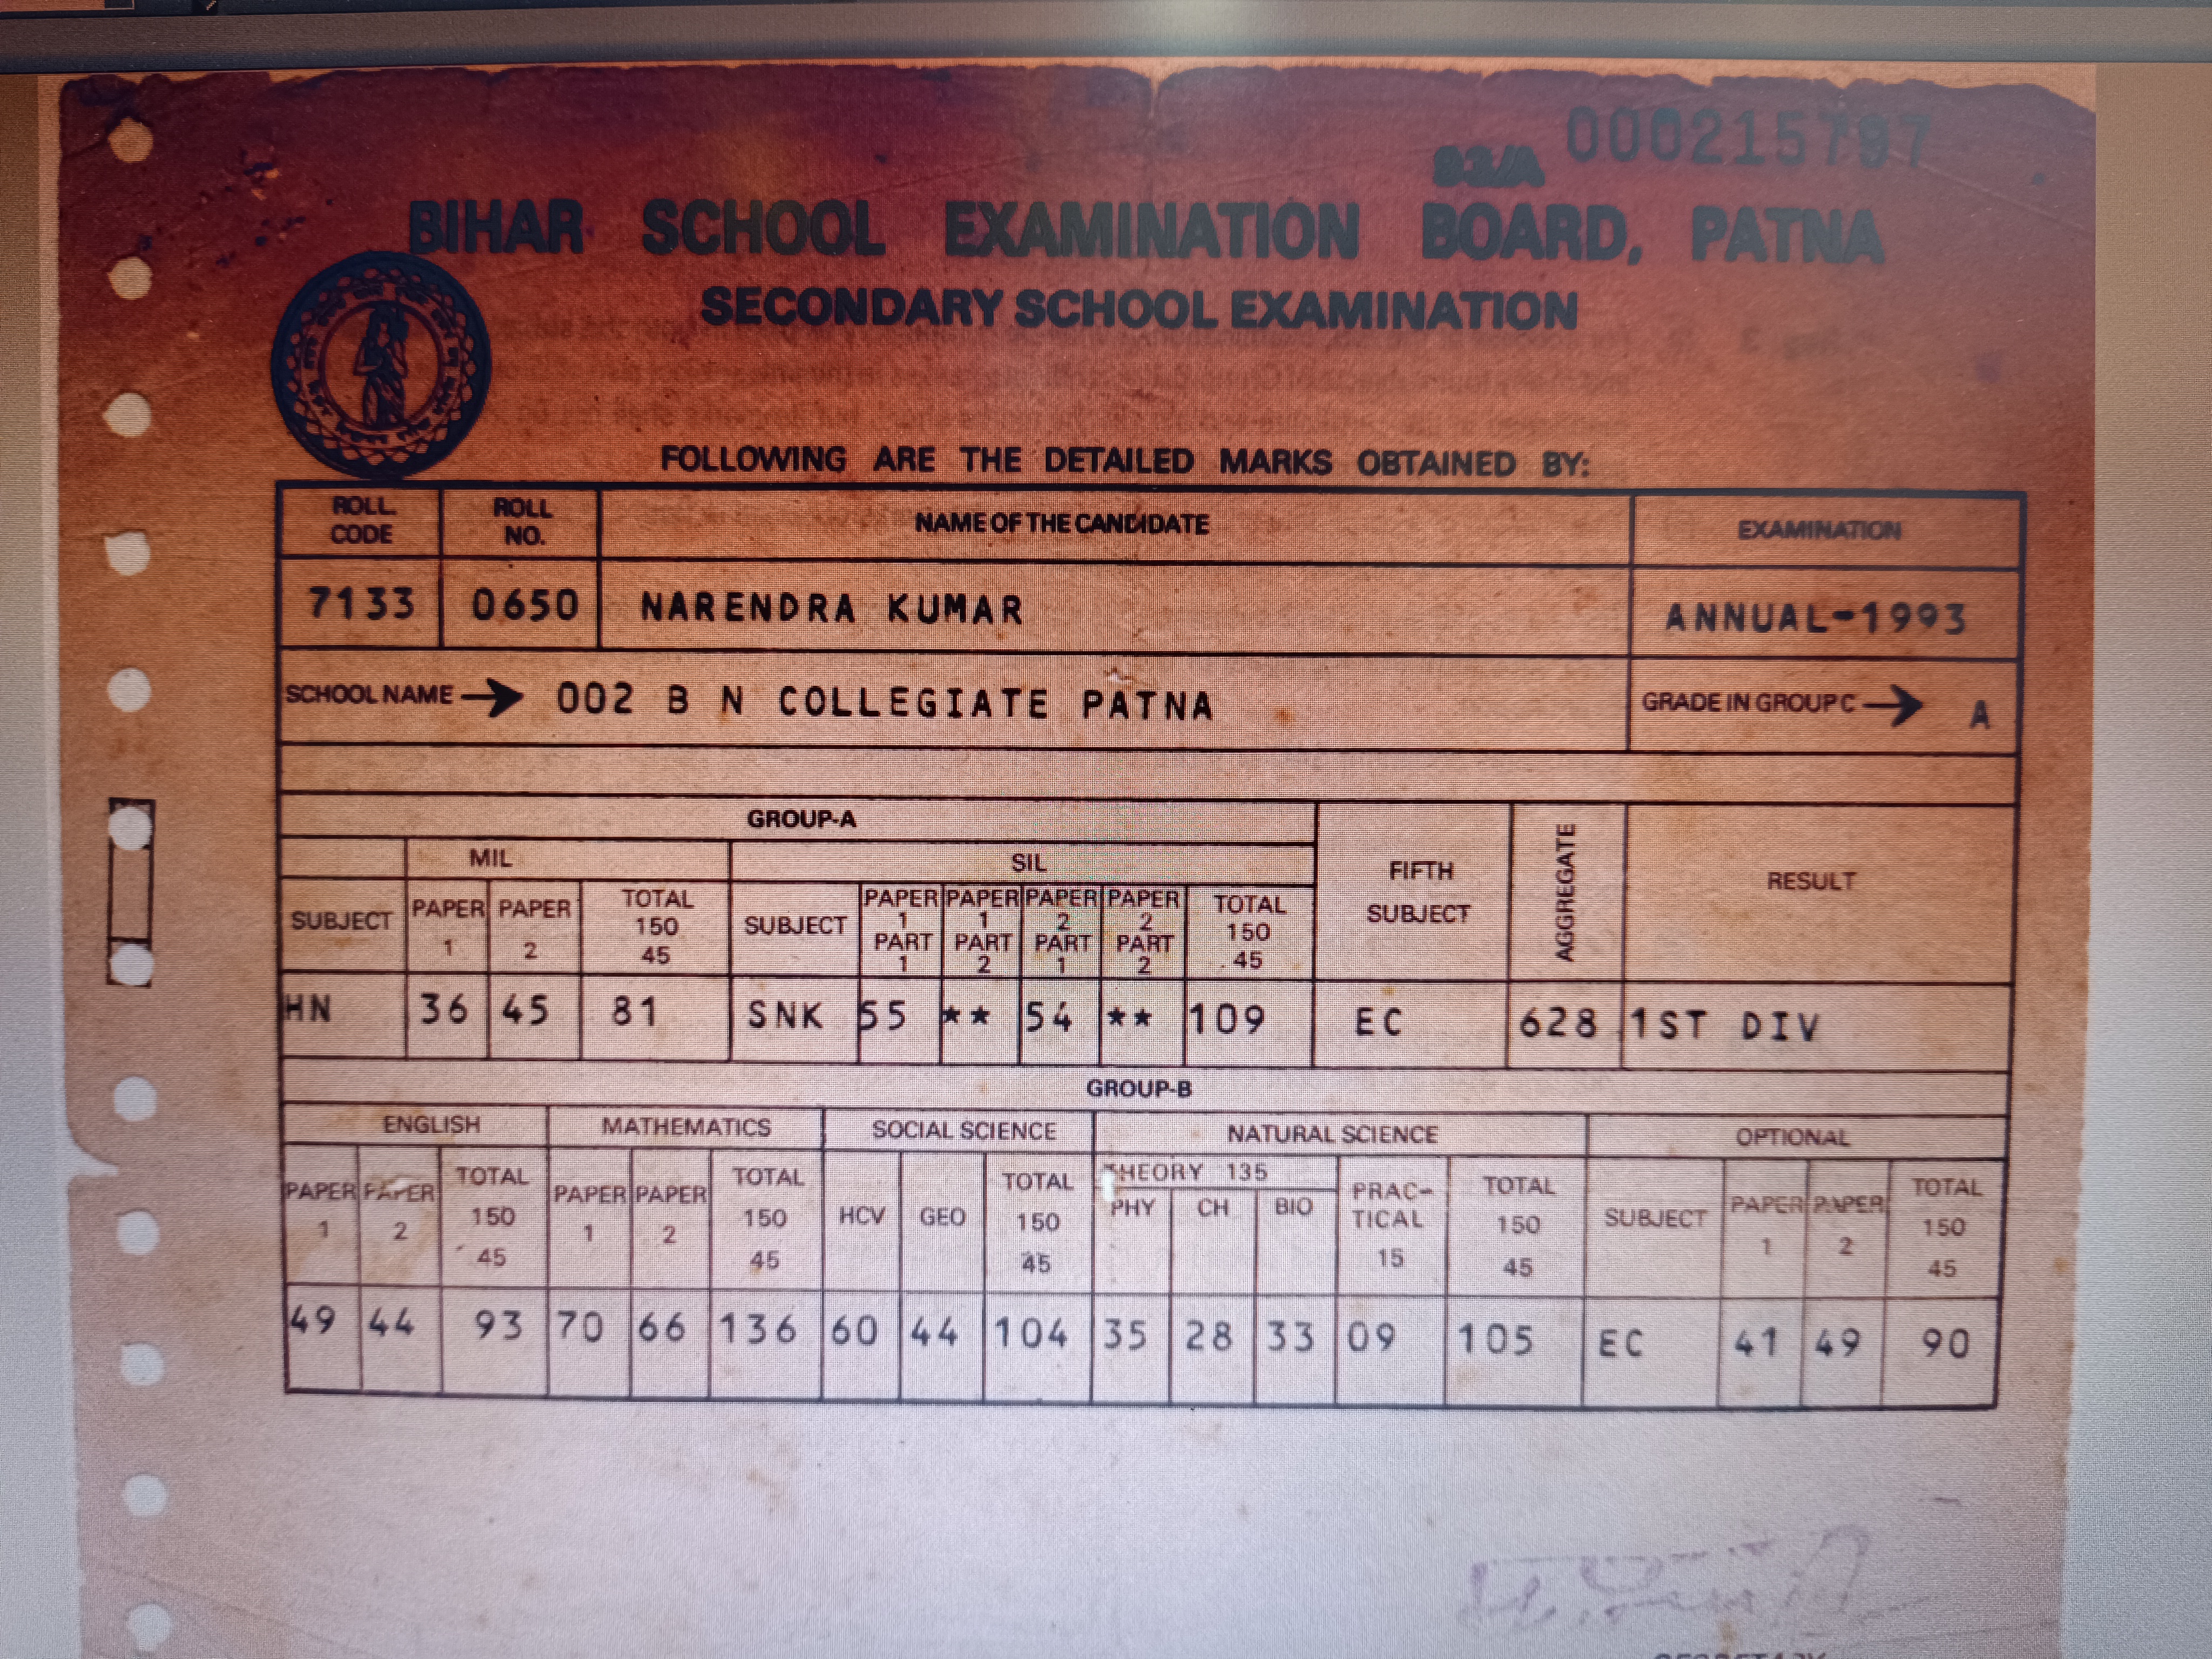 93/A 000215797
BIHAR SCHOOL EXAMINATION BOARD, PATNA
SECONDARY SCHOOL EXAMINATION
FOLLOWING ARE THE DETAILED MARKS OBTAINED BY:
ROLL CODE ROLL NO. NAME OF THE CANDIDATE EXAMINATION
7133 0650 NARENDRA KUMAR ANNUAL-1993
SCHOOL NAME → 002 B N COLLEGIATE PATNA GRADE IN GROUP C → A
GROUP-A
MIL SIL FIFTH SUBJECT AGGREGATE RESULT
SUBJECT PAPER 1 PAPER 2 TOTAL 150 45 SUBJECT PAPER 1 PART 1 PAPER 1 PART 2 PAPER 2 PART 1 PAPER 2 PART 2 TOTAL 150 45
HN 36 45 81 SNK 55 ** 54 ** 109 EC 628 1ST DIV
GROUP-B
ENGLISH MATHEMATICS SOCIAL SCIENCE NATURAL SCIENCE OPTIONAL
PAPER 1 PAPER 2 TOTAL 150 45 PAPER 1 PAPER 2 TOTAL 150 45 HCV GEO TOTAL 150 45 THEORY 135 PHY CH BIO PRAC-TICAL 15 TOTAL 150 45 SUBJECT PAPER 1 PAPER 2 TOTAL 150 45
49 44 93 70 66 136 60 44 104 35 28 33 09 105 EC 41 49 90